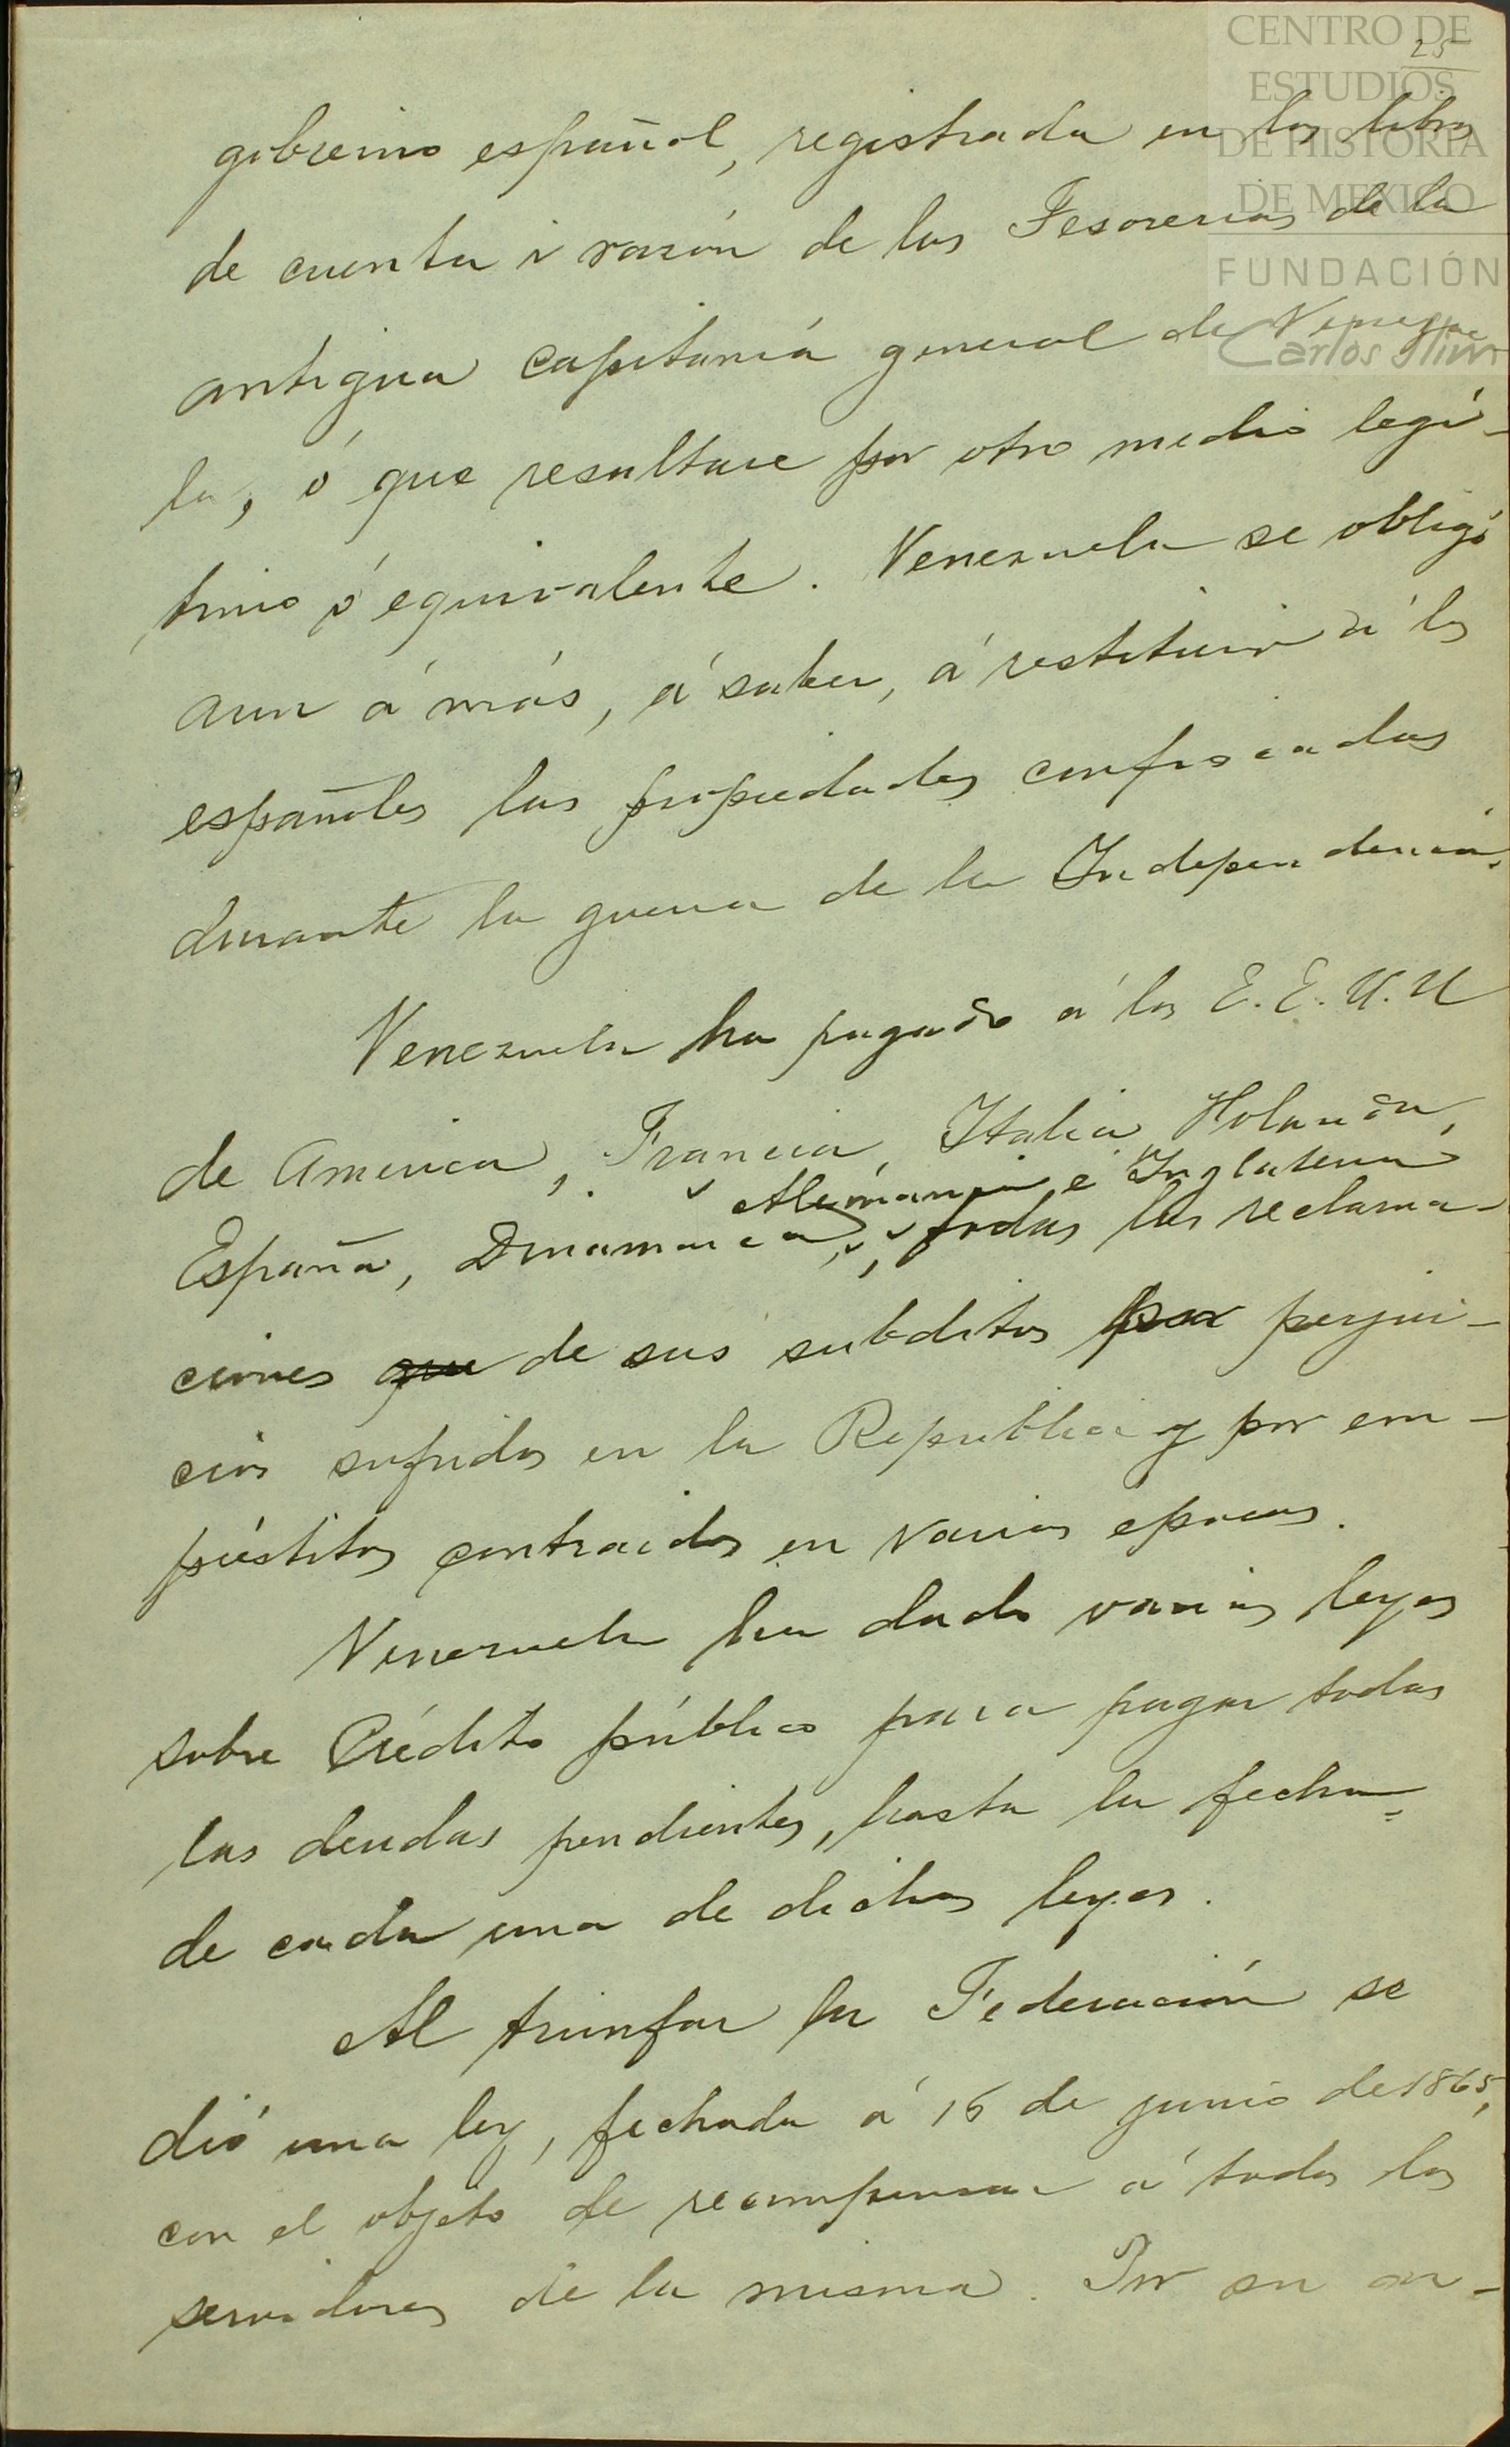 CENTRO DE
ESTUDIOS
DE HISTORIA
DE MEXICO
FUNDACIÓN
Carlos Slim
25
gobierno español, registrada en los libros
de cuenta i razón de las Tesorerias de la
antigua capitanía general de Venezue
la, ó que resultare por otro medio legí-
timo ó equivalente. Venezuela se obligó
aun á más, á saber, á restituir á los
españoles las propiedades confiscadas
durante la guerra de la Independencia.
Venezuela ha pagado á los E.E.U.U
de America, Francia, Italia, Holanda,
Alemania é Inglaterra
España, Dinamarca, todas las reclama-
ciones que de sus subditos por perjui-
cios sufridos en la Republica y por em-
préstitos contraidos en varias epocas.
Venezuela ha dado varias leyes
sobre Crédito público para pagar todas
las deudas pendientes, hasta la fecha
de cada una de dichas leyes.
Al triunfar la Federación se
dió una ley, fechada á 16 de junio de 1865,
con el objeto de recompensar á todos los
servidores de la misma. Por su ar-